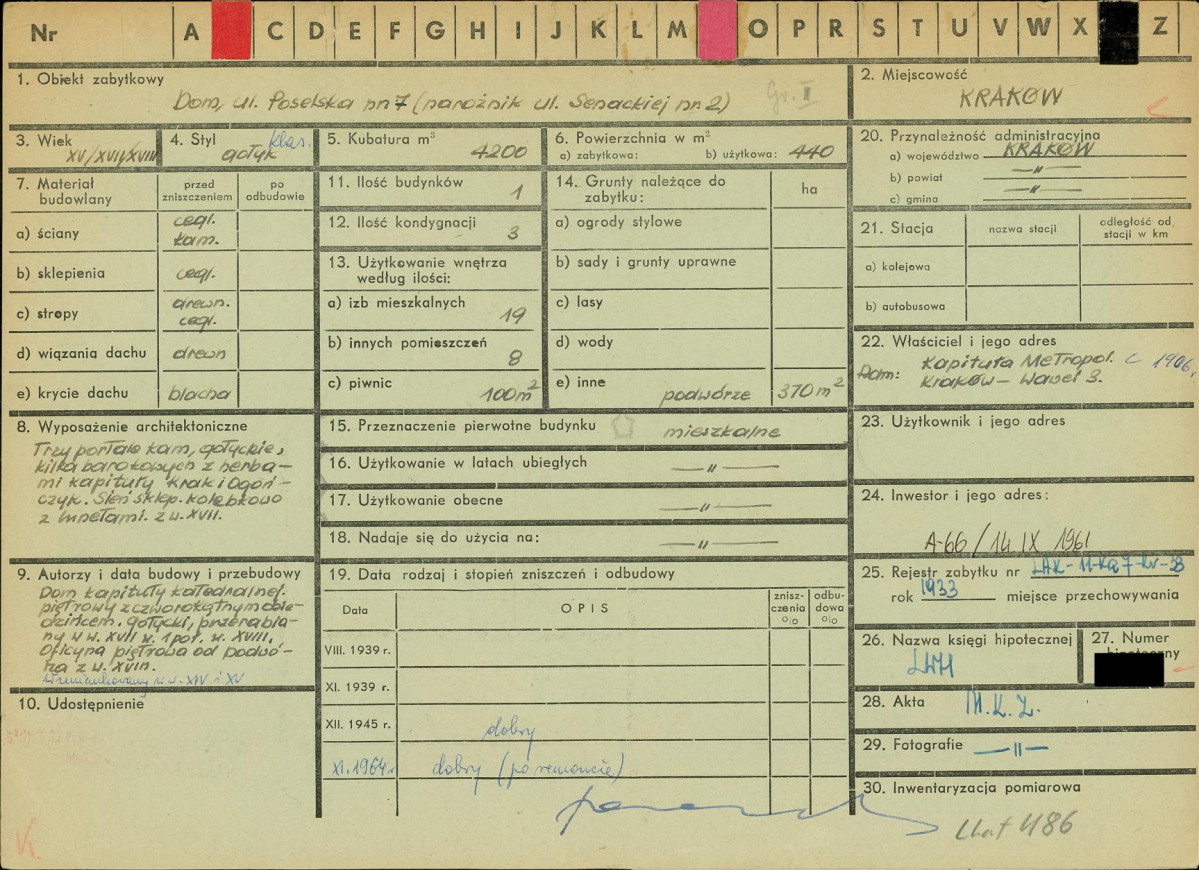 Nr A C D E F G H I J K L M O P R S T U V W X Z
1. Obiekt zabytkowy
Dom, ul. Poselska nr 7 (narożnik ul. Senackiej nr 2)
Gr. I
2. Miejscowość
KRAKÓW
3. Wiek
XV/XVII/XVIII
4. Styl
klas.
gotyk
5. Kubatura m³
4200
6. Powierzchnia w m²
a) zabytkowa: b) użytkowa: 440
20. Przynależność administracyjna
a) województwo KRAKÓW
b) powiat —"—
c) gmina —"—
7. Materiał budowlany
przed zniszczeniem
po odbudowie
a) ściany
cegl.
kam.
b) sklepienia
cegl.
c) stropy
drewn.
cegl.
d) wiązania dachu
drewn
e) krycie dachu
blacha
11. Ilość budynków
1
12. Ilość kondygnacji
3
13. Użytkowanie wnętrza
według ilości:
a) izb mieszkalnych
19
b) innych pomieszczeń
8
c) piwnic
100m²
14. Grunty należące do
zabytku:
ha
a) ogrody stylowe
b) sady i grunty uprawne
c) lasy
d) wody
e) inne
podwórze 370m²
21. Stacja
nazwa stacji
odległość od
stacji w km
a) kolejowa
b) autobusowa
22. Właściciel i jego adres
Kapituła Metropol. c 1906r.
Dom: Kraków – Wawel 3.
8. Wyposażenie architektoniczne
Trzy portale kam, gotyckie,
kilka barokowych z herba-
mi kapituły krak i Ogoń-
czyk. Sień sklep. kolebkowo
z lunetami. z w. XVII.
15. Przeznaczenie pierwotne budynku
mieszkalne
16. Użytkowanie w latach ubiegłych
—"—
17. Użytkowanie obecne
—"—
18. Nadaje się do użycia na:
—"—
23. Użytkownik i jego adres
24. Inwestor i jego adres:
A-66/14.IX 1961
9. Autorzy i data budowy i przebudowy
Dom kapituły katedralnej.
piętrowy z czworokątnym dzie-
dzińcem. gotycki, przerabia-
ny w w. XVII w. 1 poł. w. XVIII.
Oficyna piętrowa od podwó-
rza z w. XVIII.
Wzmiankowany w w. XIV i XV
10. Udostępnienie
19. Data rodzaj i stopień zniszczeń i odbudowy
Data
OPIS
znisz-
czenia
o|o
odbu-
dowa
o|o
VIII. 1939 r.
XI. 1939 r.
XII. 1945 r.
dobry
XI. 1964 r
dobry (po remoncie)
25. Rejestr zabytku nr
rok 1933 miejsce przechowywania
26. Nazwa księgi hipotecznej
LWH
27. Numer
28. Akta
M.K.Z.
29. Fotografie —"—
30. Inwentaryzacja pomiarowa
K.